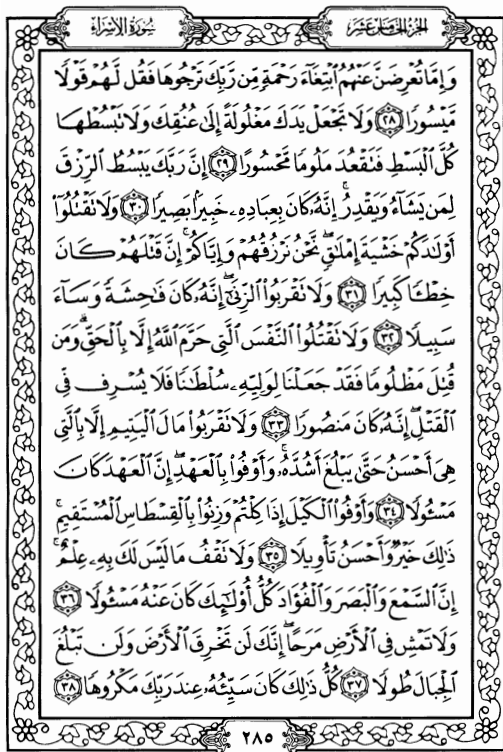 سُورَةُ الإِسْرَاءِ
الجُزْءُ الخَامِسَ عَشَرَ
وَإِمَّا تُعْرِضَنَّ عَنْهُمُ ابْتِغَاءَ رَحْمَةٍ مِّن رَّبِّكَ تَرْجُوهَا فَقُل لَّهُمْ قَوْلًا
مَّيْسُورًا ٢٨ وَلَا تَجْعَلْ يَدَكَ مَغْلُولَةً إِلَىٰ عُنُقِكَ وَلَا تَبْسُطْهَا
كُلَّ الْبَسْطِ فَتَقْعُدَ مَلُومًا مَّحْسُورًا ٢٩ إِنَّ رَبَّكَ يَبْسُطُ الرِّزْقَ
لِمَن يَشَاءُ وَيَقْدِرُ ۚ إِنَّهُ كَانَ بِعِبَادِهِۦ خَبِيرًا بَصِيرًا ٣٠ وَلَا تَقْتُلُوٓا
أَوْلَٰدَكُمْ خَشْيَةَ إِمْلَٰقٍ ۖ نَّحْنُ نَرْزُقُهُمْ وَإِيَّاكُمْ ۚ إِنَّ قَتْلَهُمْ كَانَ
خِطْـًٔا كَبِيرًا ٣١ وَلَا تَقْرَبُوا الزِّنَىٰٓ ۖ إِنَّهُ كَانَ فَٰحِشَةً وَسَاءَ
سَبِيلًا ٣٢ وَلَا تَقْتُلُوا النَّفْسَ الَّتِي حَرَّمَ اللَّهُ إِلَّا بِالْحَقِّ ۗ وَمَن
قُتِلَ مَظْلُومًا فَقَدْ جَعَلْنَا لِوَلِيِّهِۦ سُلْطَٰنًا فَلَا يُسْرِف فِّي
الْقَتْلِ ۖ إِنَّهُ كَانَ مَنصُورًا ٣٣ وَلَا تَقْرَبُوا مَالَ الْيَتِيمِ إِلَّا بِالَّتِي
هِيَ أَحْسَنُ حَتَّىٰ يَبْلُغَ أَشُدَّهُ ۚ وَأَوْفُوا بِالْعَهْدِ ۖ إِنَّ الْعَهْدَ كَانَ
مَسْـُٔولًا ٣٤ وَأَوْفُوا الْكَيْلَ إِذَا كِلْتُمْ وَزِنُوا بِالْقِسْطَاسِ الْمُسْتَقِيمِ ۚ
ذَٰلِكَ خَيْرٌ وَأَحْسَنُ تَأْوِيلًا ٣٥ وَلَا تَقْفُ مَا لَيْسَ لَكَ بِهِۦ عِلْمٌ ۚ
إِنَّ السَّمْعَ وَالْبَصَرَ وَالْفُؤَادَ كُلُّ أُو۟لَٰٓئِكَ كَانَ عَنْهُ مَسْـُٔولًا ٣٦
وَلَا تَمْشِ فِي الْأَرْضِ مَرَحًا ۖ إِنَّكَ لَن تَخْرِقَ الْأَرْضَ وَلَن تَبْلُغَ
الْجِبَالَ طُولًا ٣٧ كُلُّ ذَٰلِكَ كَانَ سَيِّئُهُ عِندَ رَبِّكَ مَكْرُوهًا ٣٨
٢٨٥